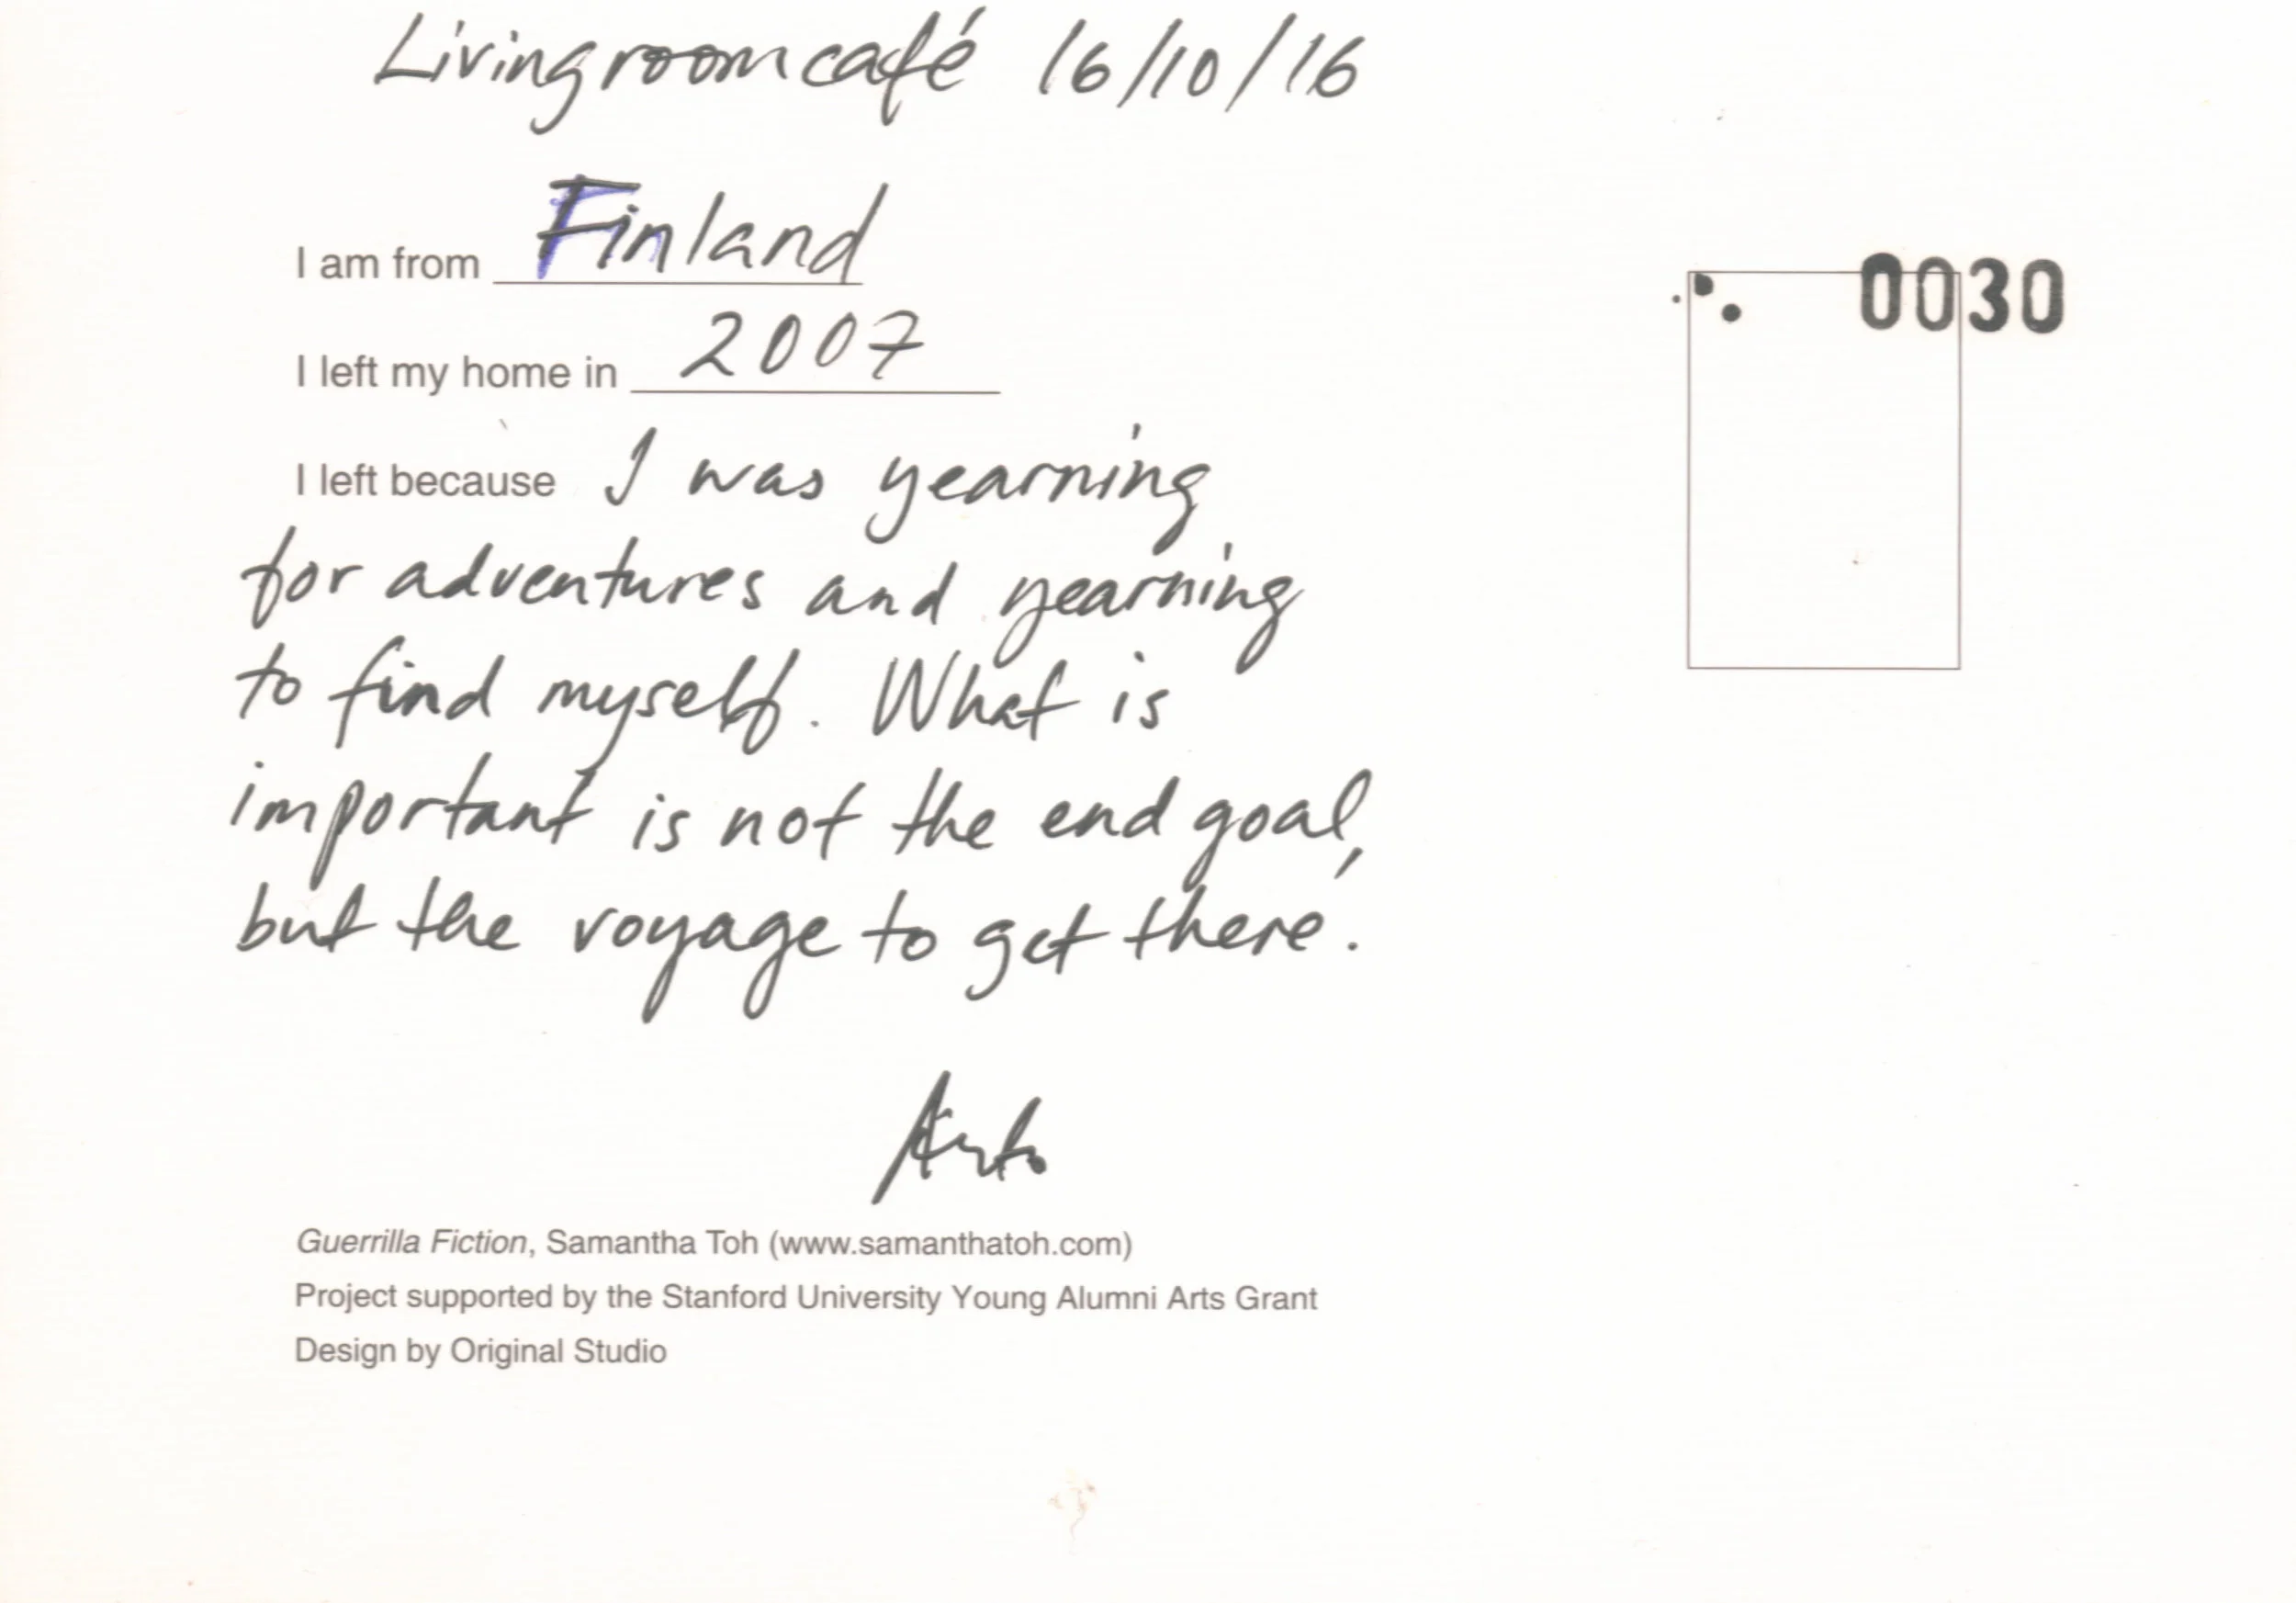 Livingroomcafé 16/10/16
I am from Finland
0030
I left my home in 2007
I left because I was yearning
for adventures and yearning
to find myself. What is
important is not the end goal,
but the voyage to get there!
Arto
Guerrilla Fiction, Samantha Toh (www.samanthatoh.com)
Project supported by the Stanford University Young Alumni Arts Grant
Design by Original Studio